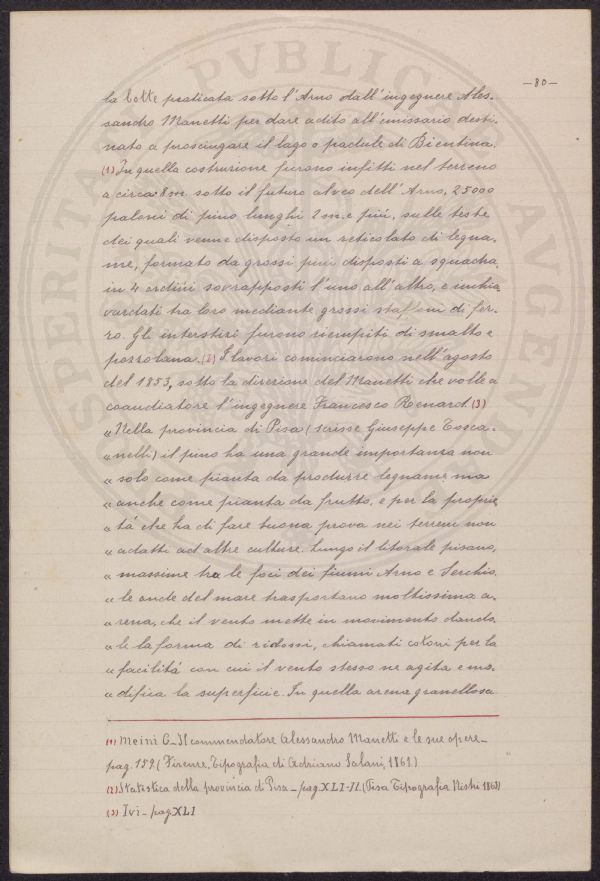 -80-
la botte praticata sotto l'Arno dall'ingegnere Ales-
sandro Manetti per dare adito all'emissario desti-
nato a prosciugare il lago o padule di Bientina.
(1) In quella costruzione furono infitti nel terreno
a circa 8 m. sotto il futuro alveo dell'Arno, 25000
paloni di pino lunghi 2 m. e più, sulle teste
dei quali venne disposto un reticolato di legna-
me, formato da grossi pini disposti a squadra
in 4 ordini sovrapposti l'uno all'altro, e inchia
vardati tra loro mediante grossi staffoni di fer-
ro. Gli interstizi furono riempiti di smalto e
pozzolana. (2) I lavori cominciarono nell'agosto
del 1853, sotto la direzione del Manetti che volle a
coaudiatore l'ingegnere Francesco Renard. (3)
« Nella provincia di Pisa (scrisse Giuseppe Tosca-
« nelli) il pino ha una grande importanza non
« solo come pianta da produrre legname ma
« anche come pianta da frutto, e per la proprie
« tà che ha di fare buona prova nei terreni non
« adatti ad altre culture. Lungo il litorale pisano,
« massime tra le foci dei fiumi Arno e Serchio,
« le onde del mare trasportano moltissima a-
« rena, che il vento mette in movimento dando
« le la forma di ridossi, chiamati cotoni per la
« facilità con cui il vento stesso ne agita e mo-
« difica la superficie. In quella arena granellosa
(1) Meini C_Il commendatore Alessandro Manetti e le sue opere_
pag. 159. (Firenze, Tipografia di Adriano Salani, 1867)
(2) Statistica della provincia di Pisa_pag. XLI-IL. (Pisa Tipografia Nistri 1863)
(3) Ivi-pag. XLI
PVBLIC